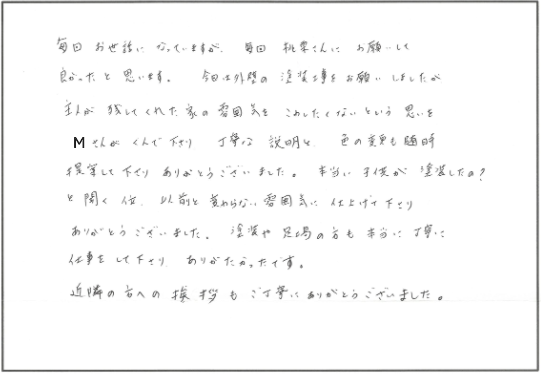 毎回 お世話に なっていますが、毎回 桃栗さんに お願いして
良かったと 思います。 今回は外壁の 塗装工事を お願い しましたが
主人が 残してくれた 家の 雰囲気を こわしたくないという 思いを
Mさんが くんで下さり 丁寧な 説明と、色の変更も 随時
提案して下さり ありがとうございました。 本当に 子供が 塗装したの?
と聞く 位、以前と変わらない 雰囲気に 仕上げて下さり
ありがとうございました。 塗装や 足場の方も 本当に 丁寧に
仕事をして下さり ありがたかったです。
近隣の方への 挨拶も ご丁寧に ありがとうございました。